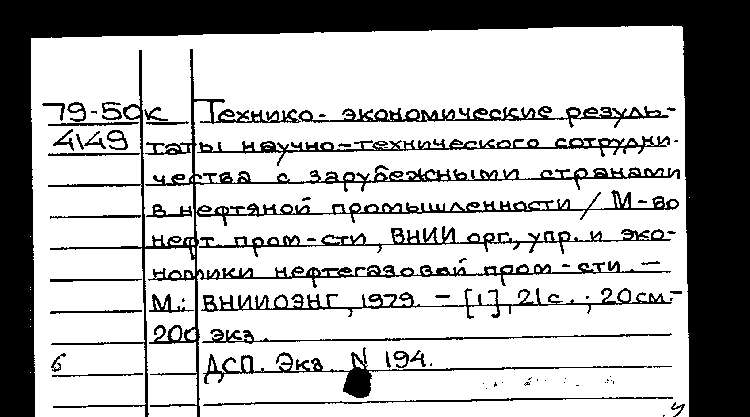 79-50к Технико-экономические резуль-
4149 таты научно-технического сотрудни-
чества с зарубежными странами
в нефтяной промышленности / М-во
нефт. пром-сти, ВНИИ орг., упр. и эко-
номики нефтегазовой пром-сти. —
М.: ВНИИОЭНГ, 1979. — [1], 21 с.; 20 см. —
200 экз.
б ДСП. Экз. N 194.